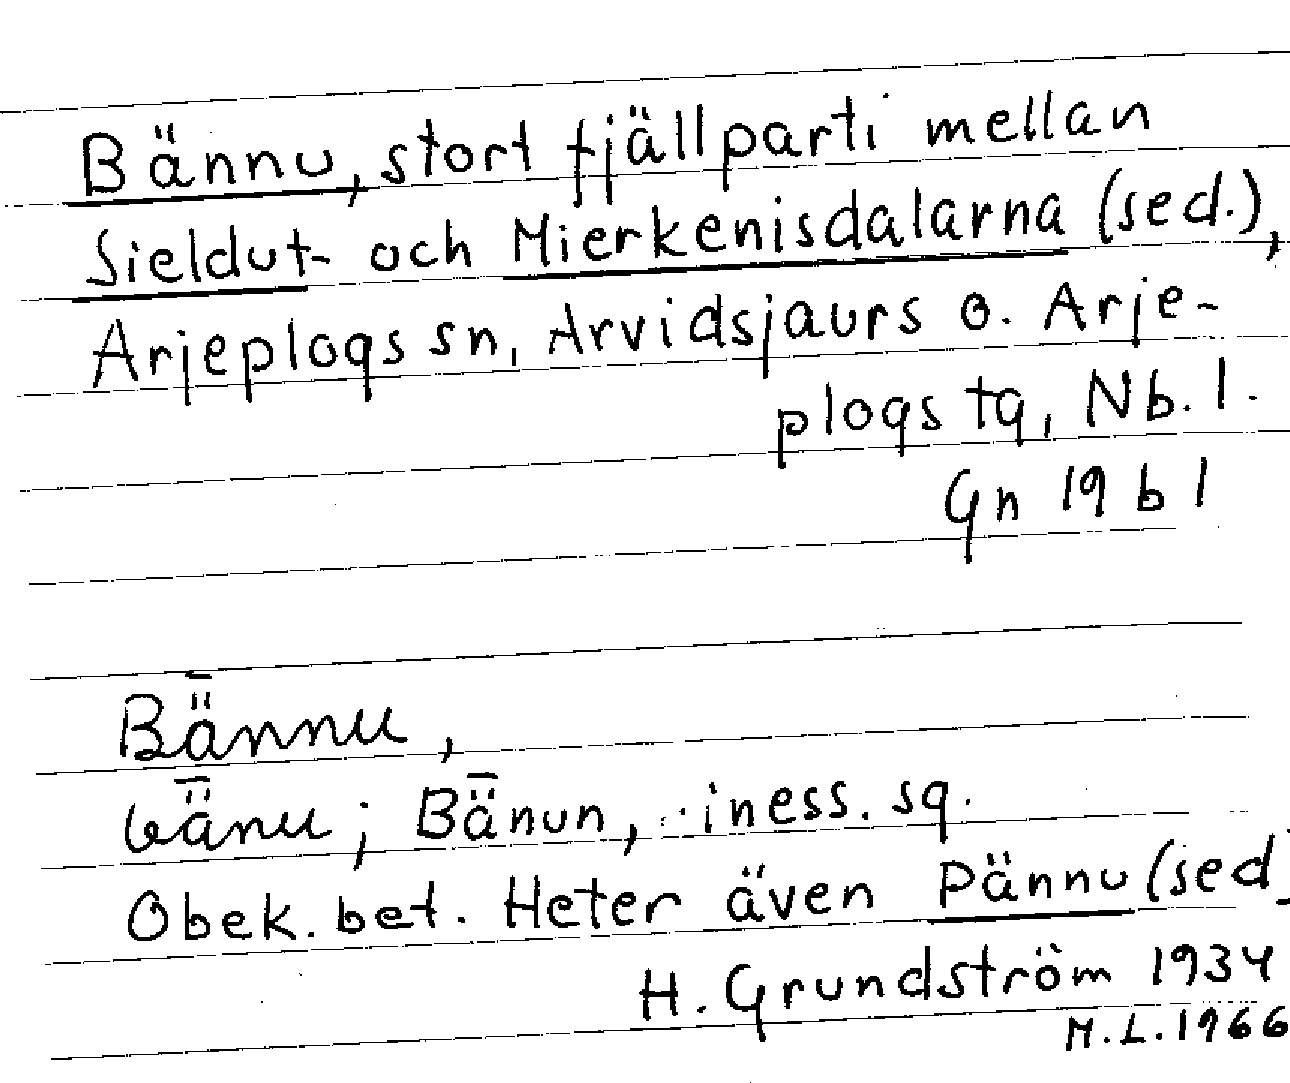 Bännu, stort fjällparti mellan
Sieldut- och Mierkenisdalarna (sed.),
Arjeplogs sn, Arvidsjaurs o. Arje-
plogs tg, Nb. l.
Gn 19 b 1
Bǟnnu,
bǟnu; Bǟnun, iness. sg.
Obek. bet. Heter även Pännu (sed
H. Grundström 1934
M.L. 1966